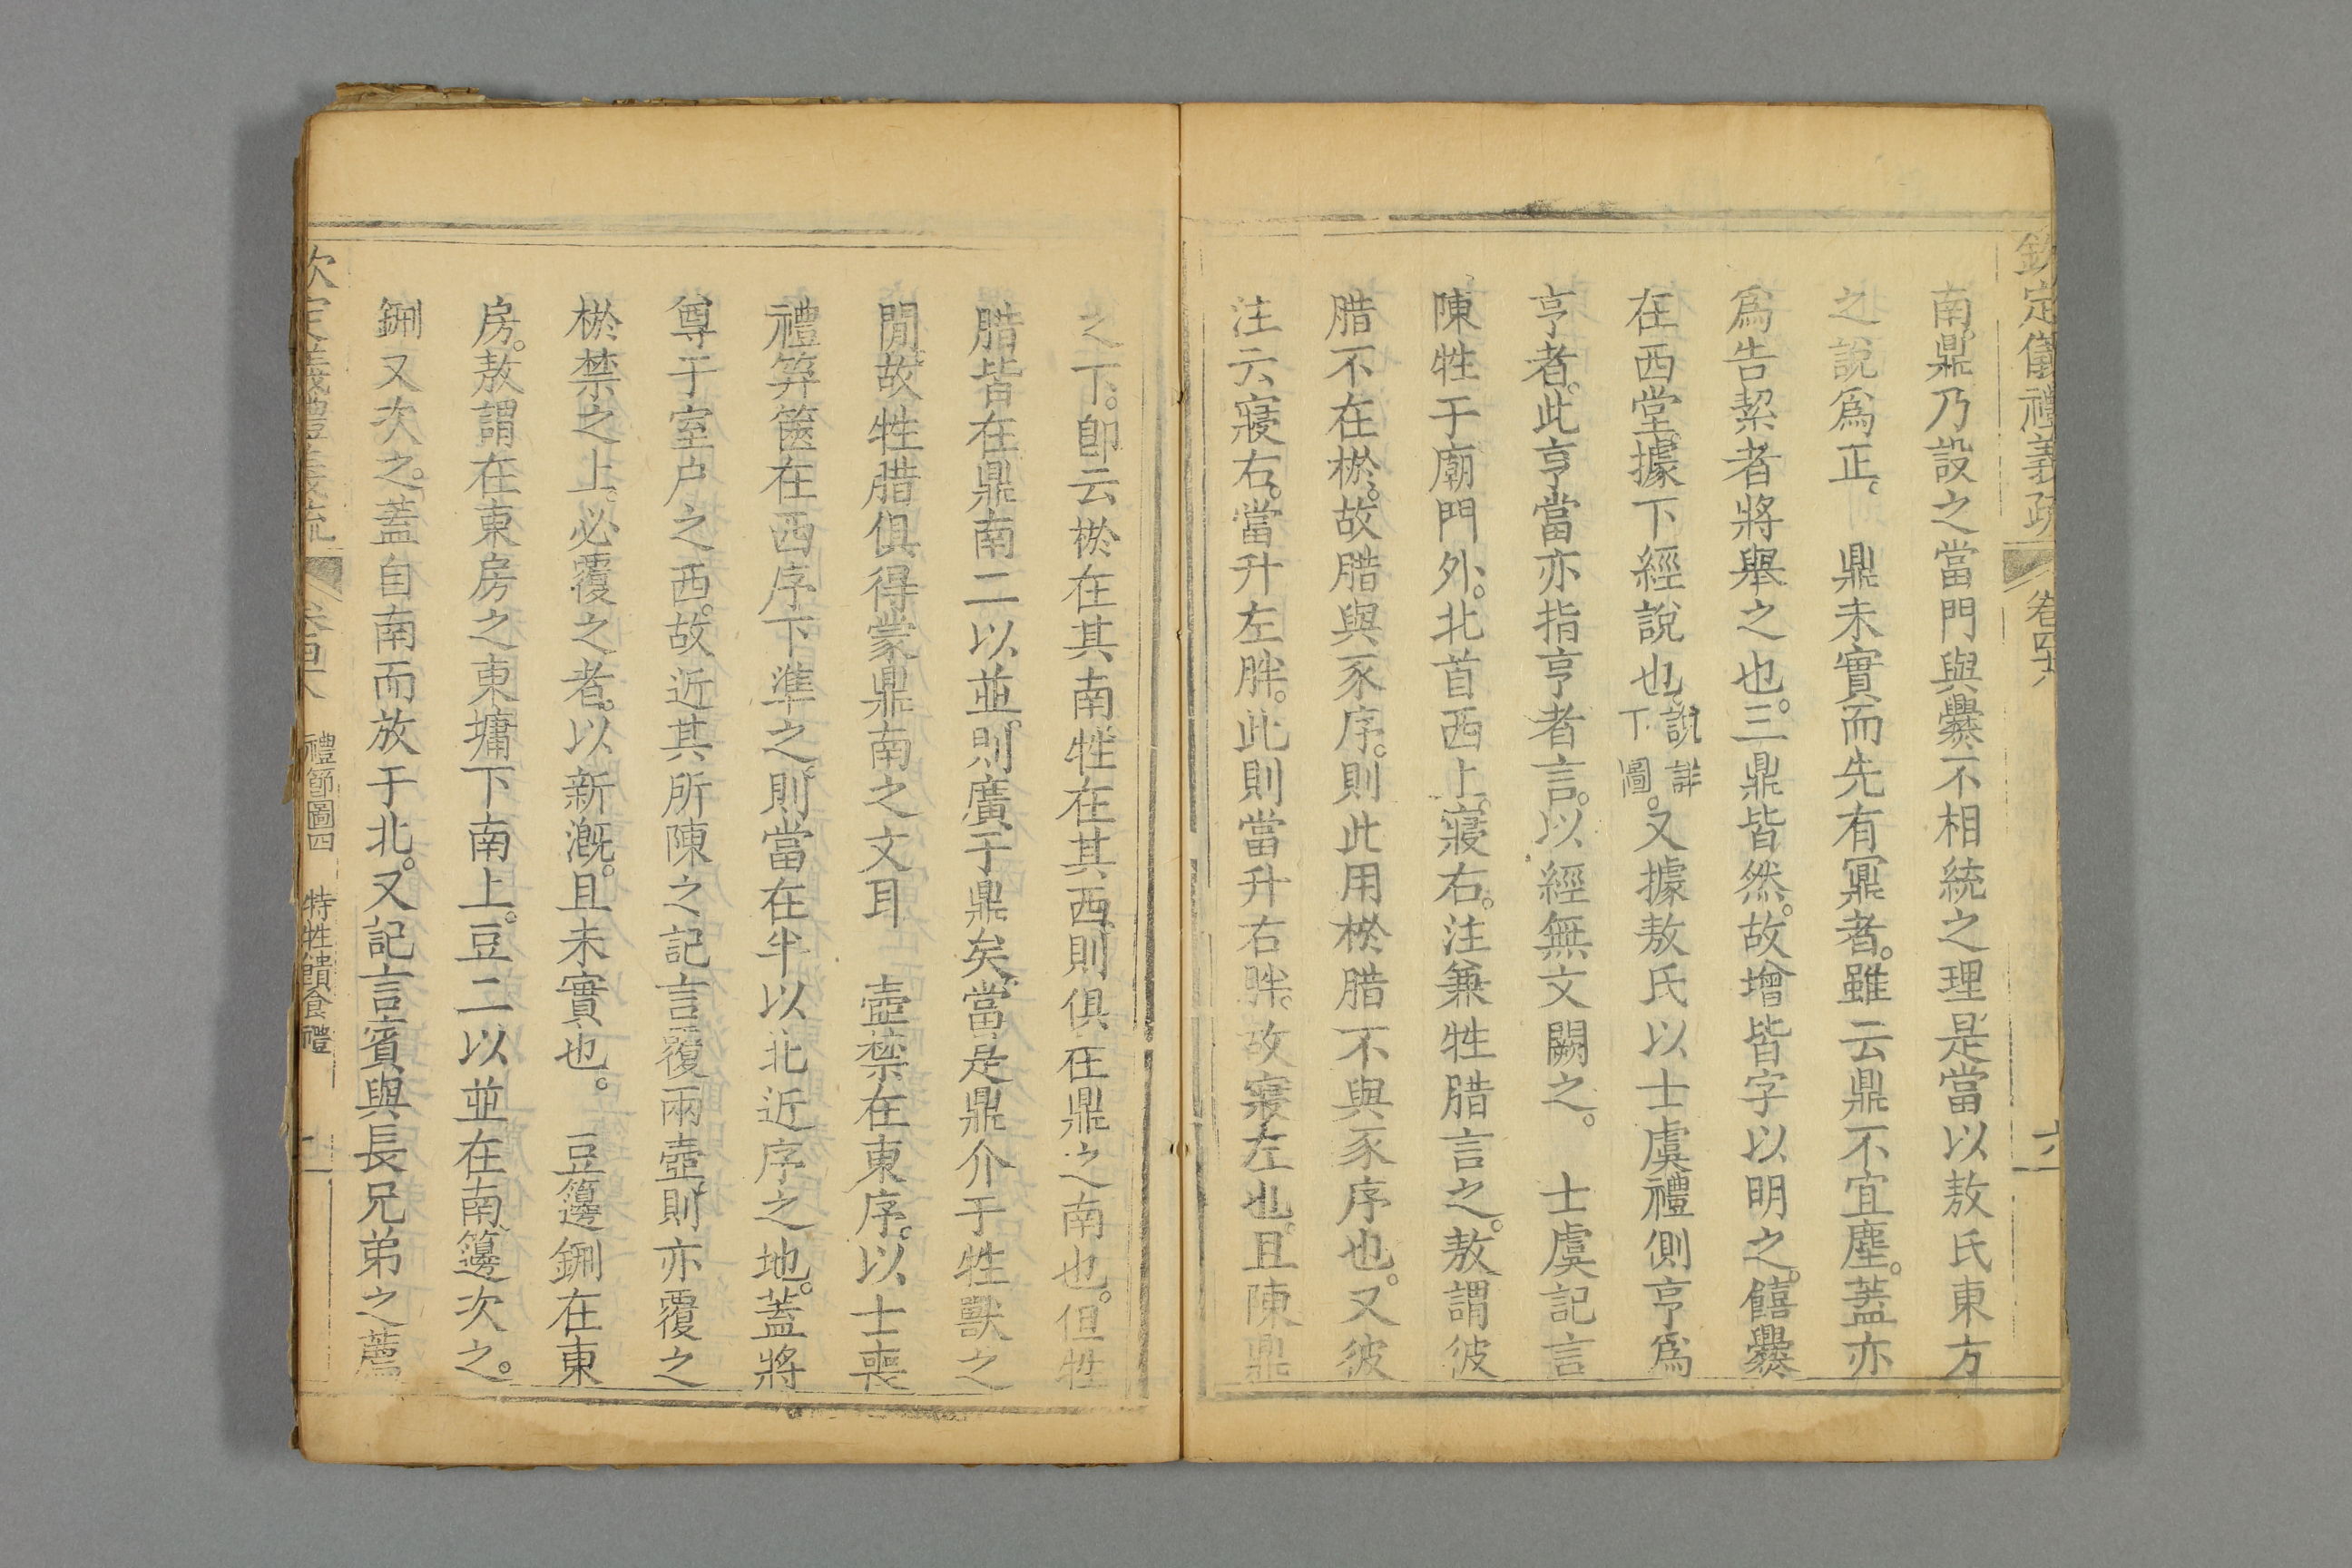 欽定儀禮義疏 卷四十八 六
南鼎乃設之當門與爨不相統之理是當以敖氏東方
之說爲正。 鼎未實而先有鼏者。雖云鼎不宜塵。蓋亦
爲告絜者將舉之也。三鼎皆然。故增皆字以明之。饎爨
在西堂。據下經說也。說詳下圖。又據敖氏以士虞禮側亨爲
亨者。此亨當亦指亨者言。以經無文闕之。 士虞記言
陳牲于廟門外。北首西上。寢右。注兼牲腊言之。敖謂彼
腊不在棜。故腊與豕序。則此用棜腊不與豕序也。又彼
注云寢右。當升左胖。此則當升右胖。故寢左也。且陳鼎
之下。卽云棜在其南牲在其西則俱在鼎之南也。但牲
腊皆在鼎南二以並。則廣于鼎矣。當是鼎介于牲獸之
閒。故牲腊俱得蒙鼎南之文耳 壺棜禁在東序。以士喪
禮筭篋在西序下準之。則當在半以北近序之地。蓋將
尊于室户之西。故近其所陳之記言覆兩壺則亦覆之
棜禁之上。必覆之者。以新漑。且未實也。 豆籩鉶在東
房。敖謂在東房之東墉下南上。豆二以並在南籩次之。
鉶又次之。蓋自南而放于北。又記言賓與長兄弟之薦
欽定義禮義疏 卷四十八 禮節圖四 特牲饋食禮